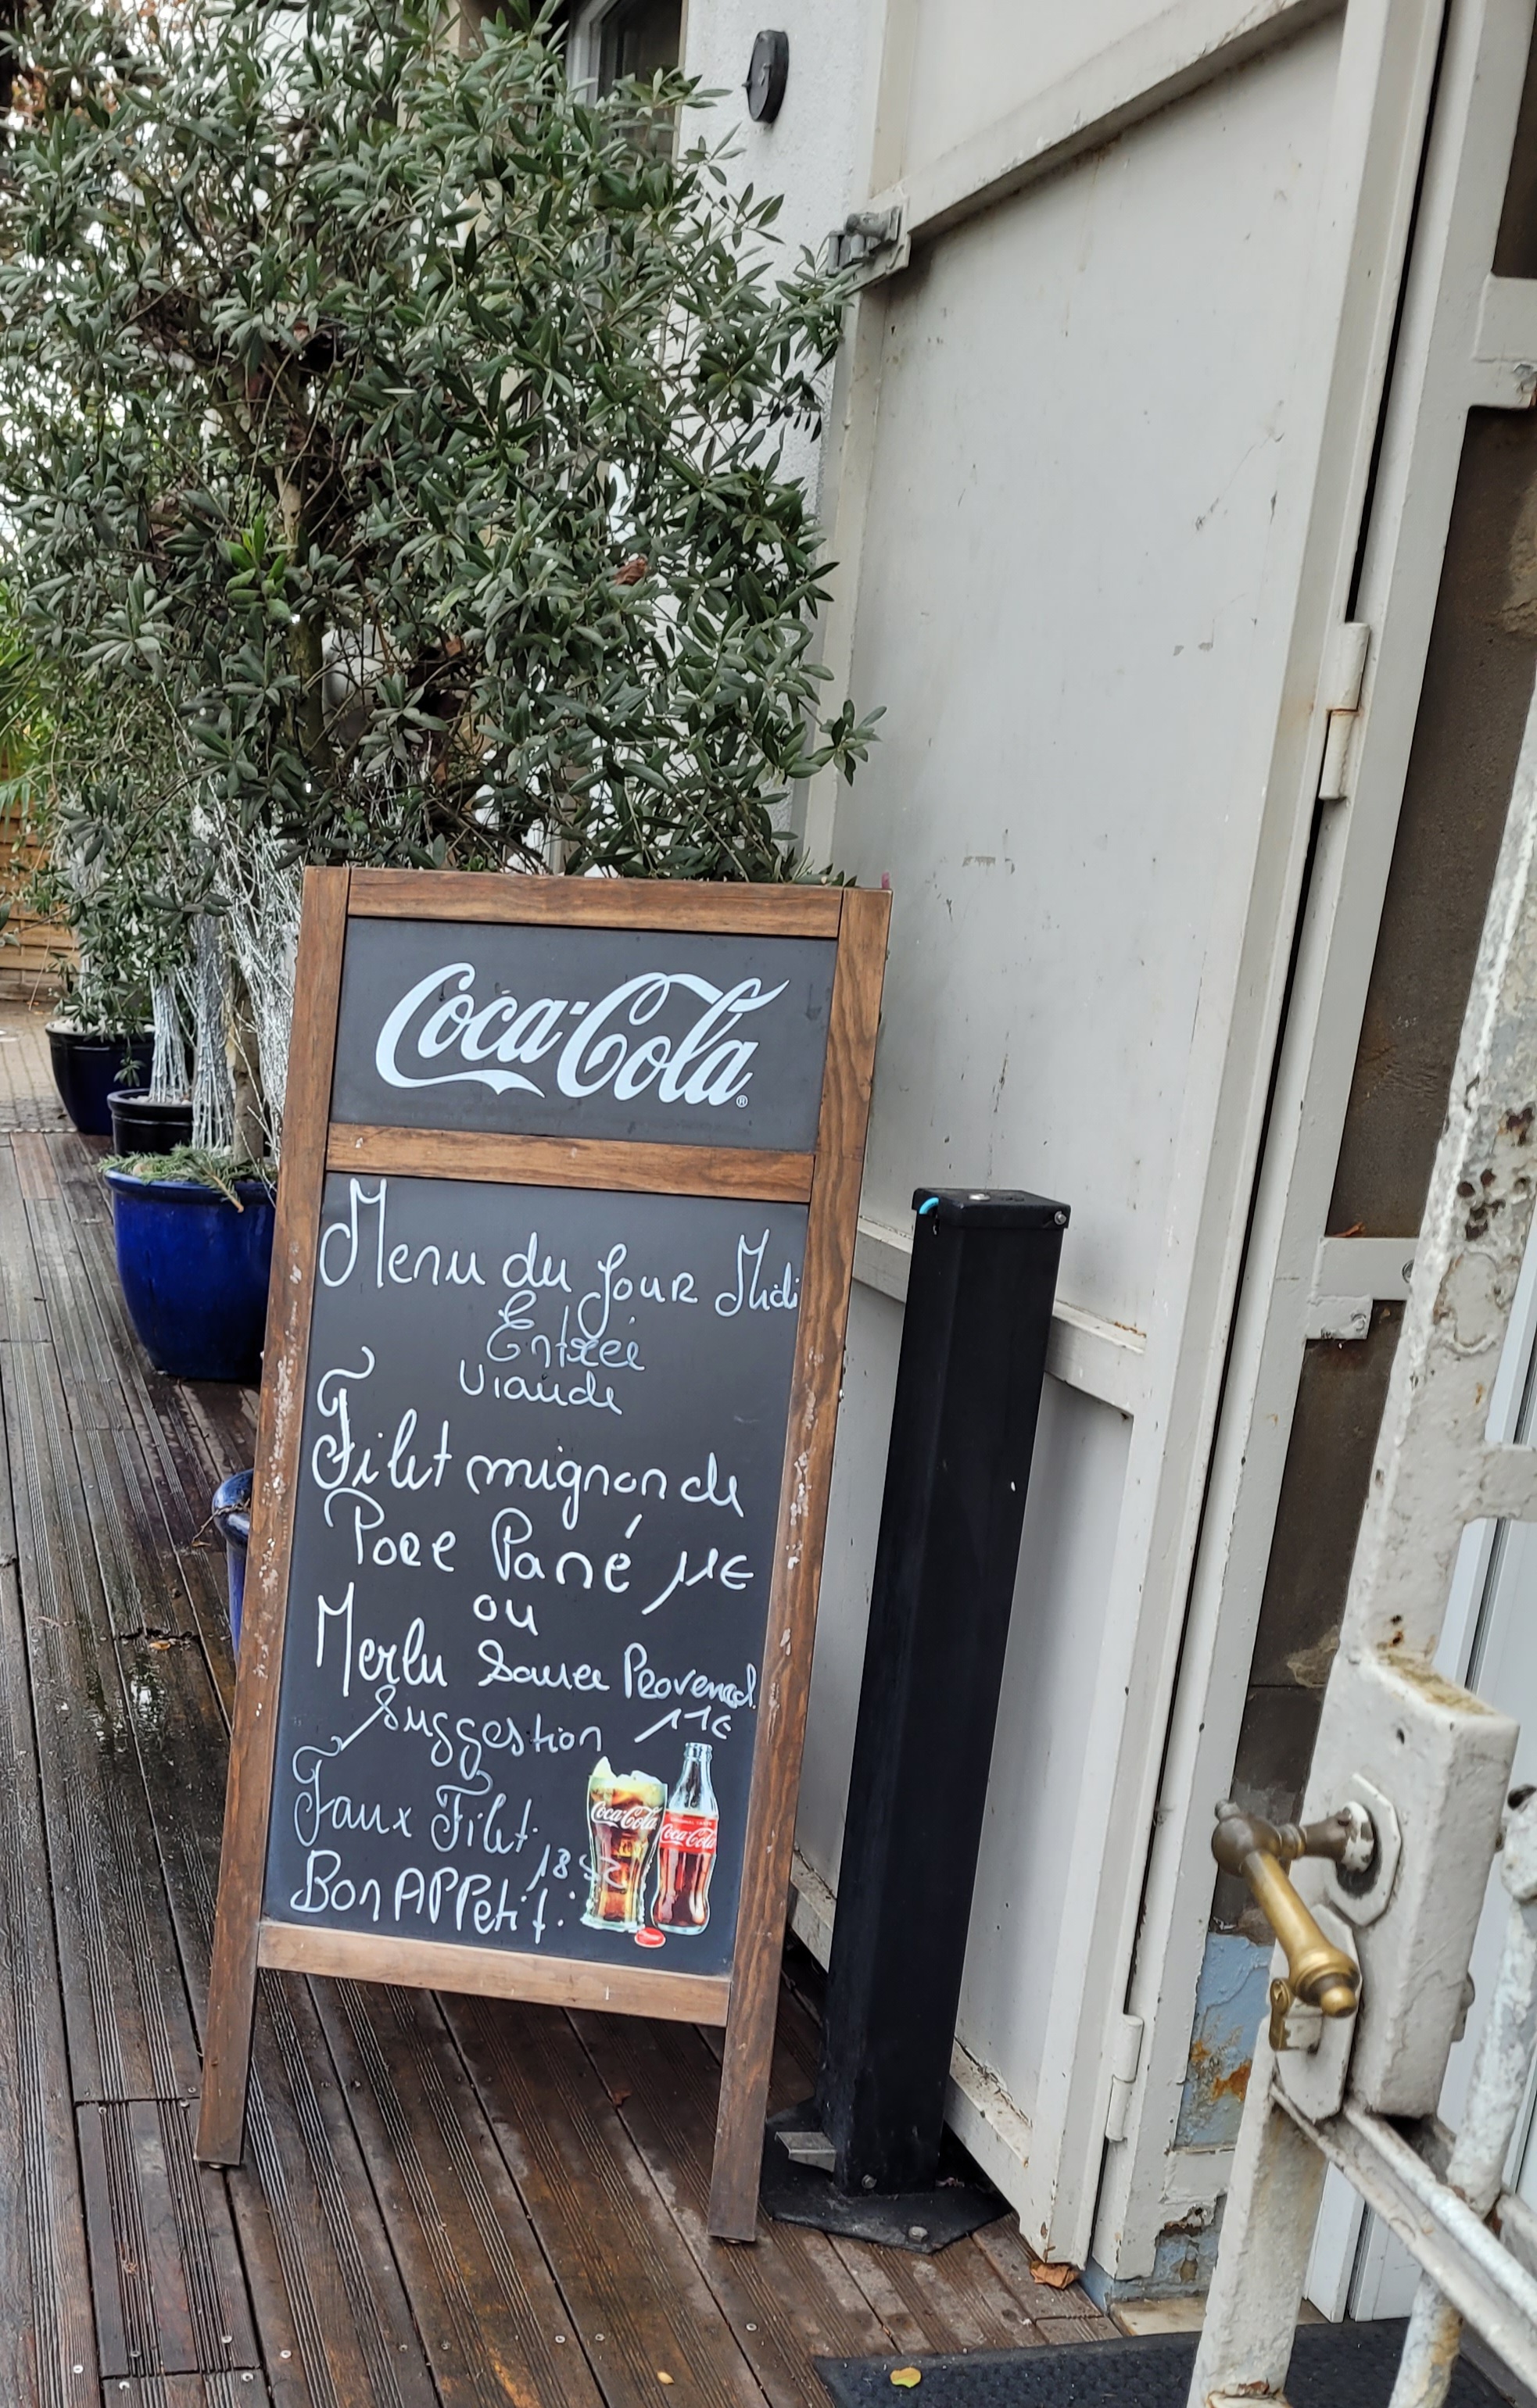 Coca-Cola®
Menu du Jour Midi
Entrée
Viande
Filet mignon de
Porc Pané 11€
ou
Merlu Sauce Provencal.
Suggestion 11€
Faux Filet.
Bon APPetit.
Coca-Cola
Coca-Cola